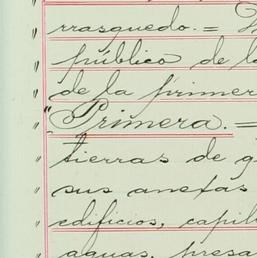 rrasquedo. =
público de la
de la primer
"Primera. =
tierras de g
sus anexas
edificios, capill
aguas, presa